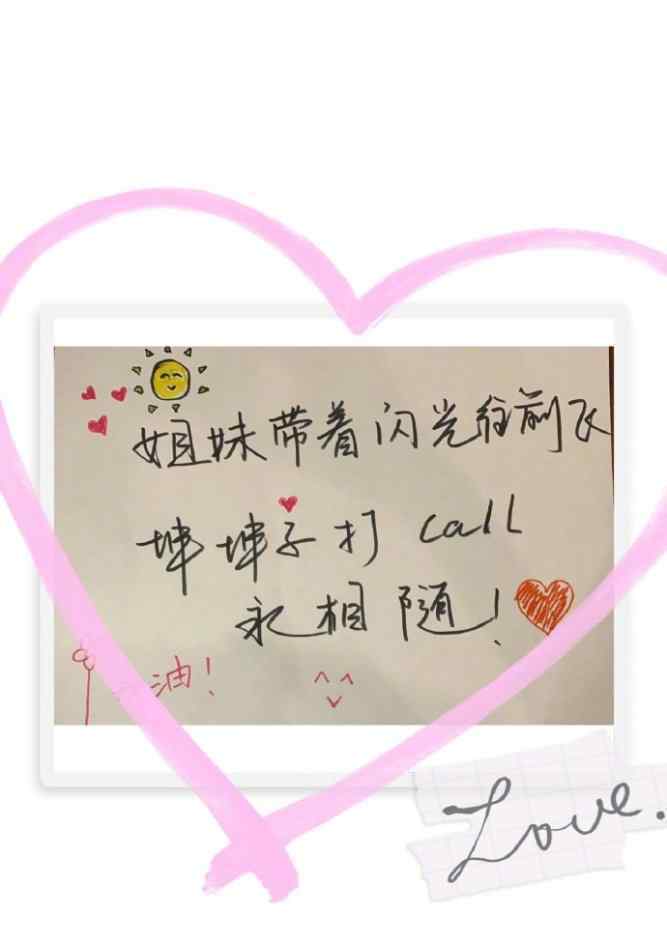 姐妹带着闪光往前飞
坤坤子打 call
永相随!
油!
Love.